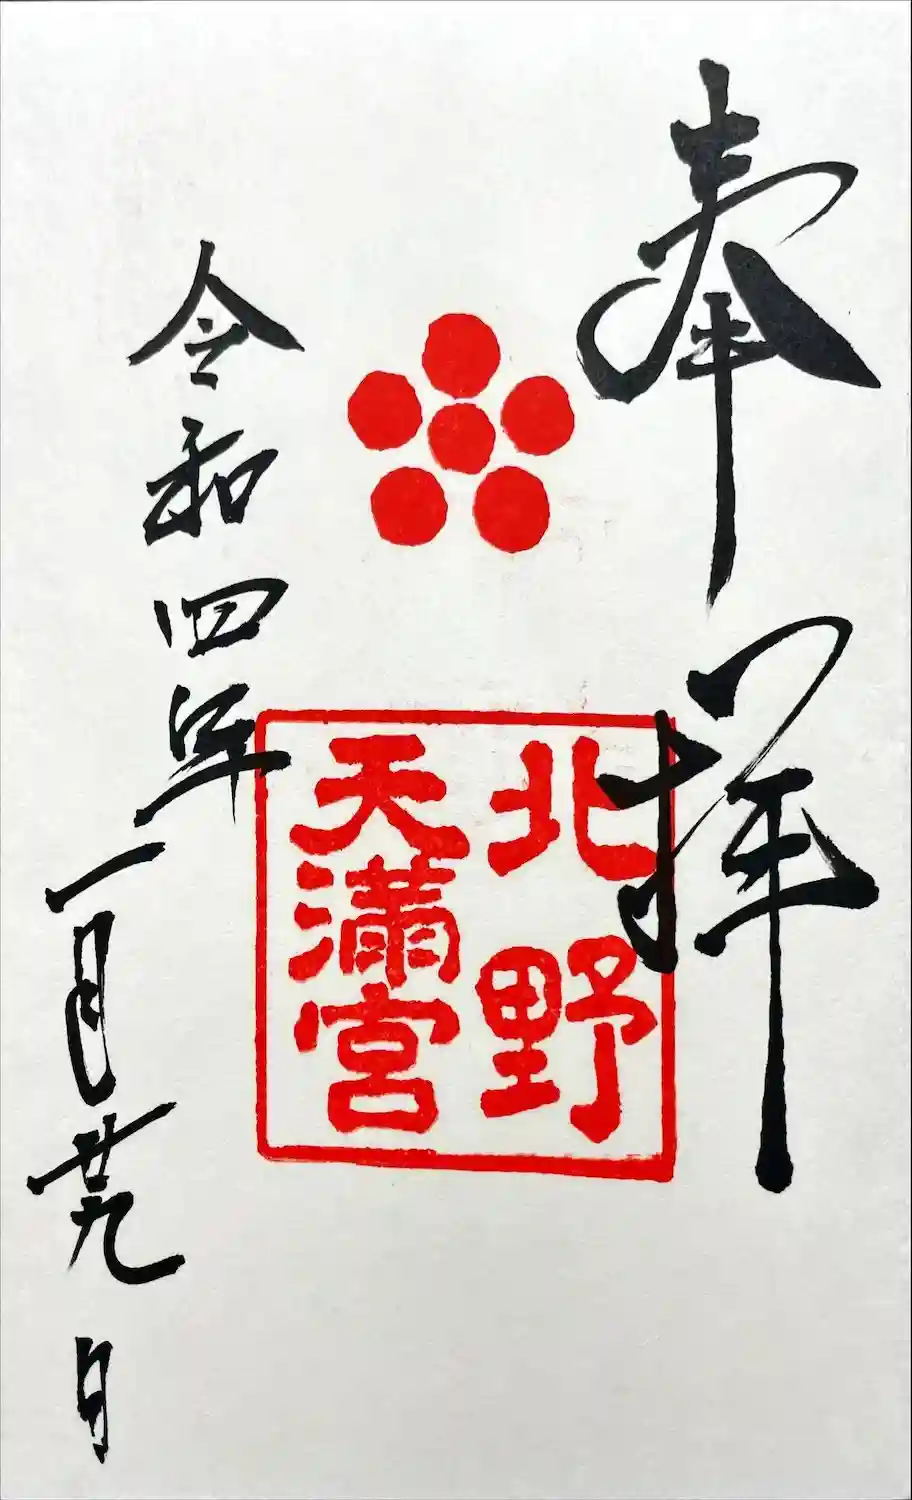 奉拝
北野
天満宮
令和四年
一月廿九日